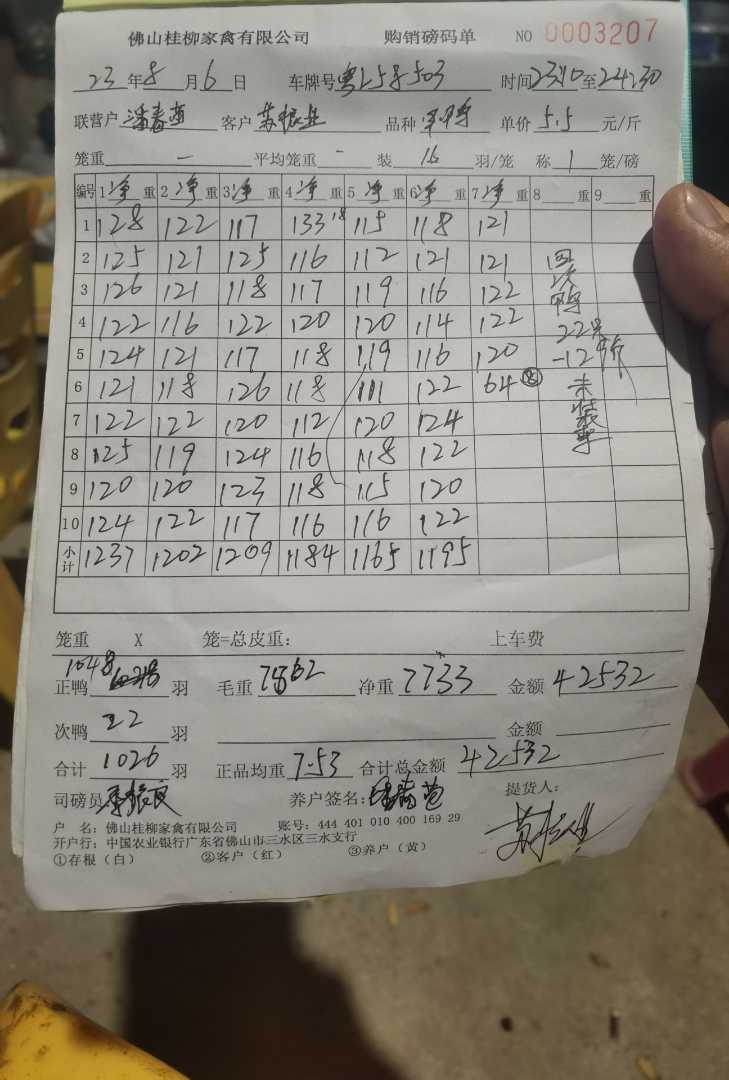 佛山桂柳家禽有限公司 购销磅码单 NO 0003207
23年8月6日 车牌号粤L58503 时间23:10至24:30
联营户 客户 苏振业 品种 单价 5.5 元/斤
笼重 - 平均笼重 - 装 16 羽/笼 称 1 笼/磅
编号 1净重 2净重 3净重 4净重 5净重 6净重 7净重 8 重 9 重
1 128 122 117 133 18 115 118 121
2 125 121 125 116 112 121 121 回次
3 126 121 118 117 119 116 122 鸭
4 122 116 122 120 120 114 122 22只
5 124 121 117 118 119 116 120 -129斤
6 121 118 126 118 111 122 64 ⑧ 未
7 122 122 120 112 120 124 装
8 125 119 124 116 118 122 车
9 120 120 123 118 115 120
10 124 122 117 116 116 122
小计 1237 1202 1209 1184 1165 1195
笼重 X 笼=总皮重: 上车费
1048
正鸭 羽 毛重 7862 净重 7733 金额 42532
次鸭 22 羽 金额
合计 1026 羽 正品均重 7.53 合计总金额 42532
司磅员: 养户签名: 提货人:
户 名: 佛山桂柳家禽有限公司 账号: 444 401 010 400 169 29
开户行: 中国农业银行广东省佛山市三水区三水支行
①存根(白) ②客户(红) ③养户(黄)